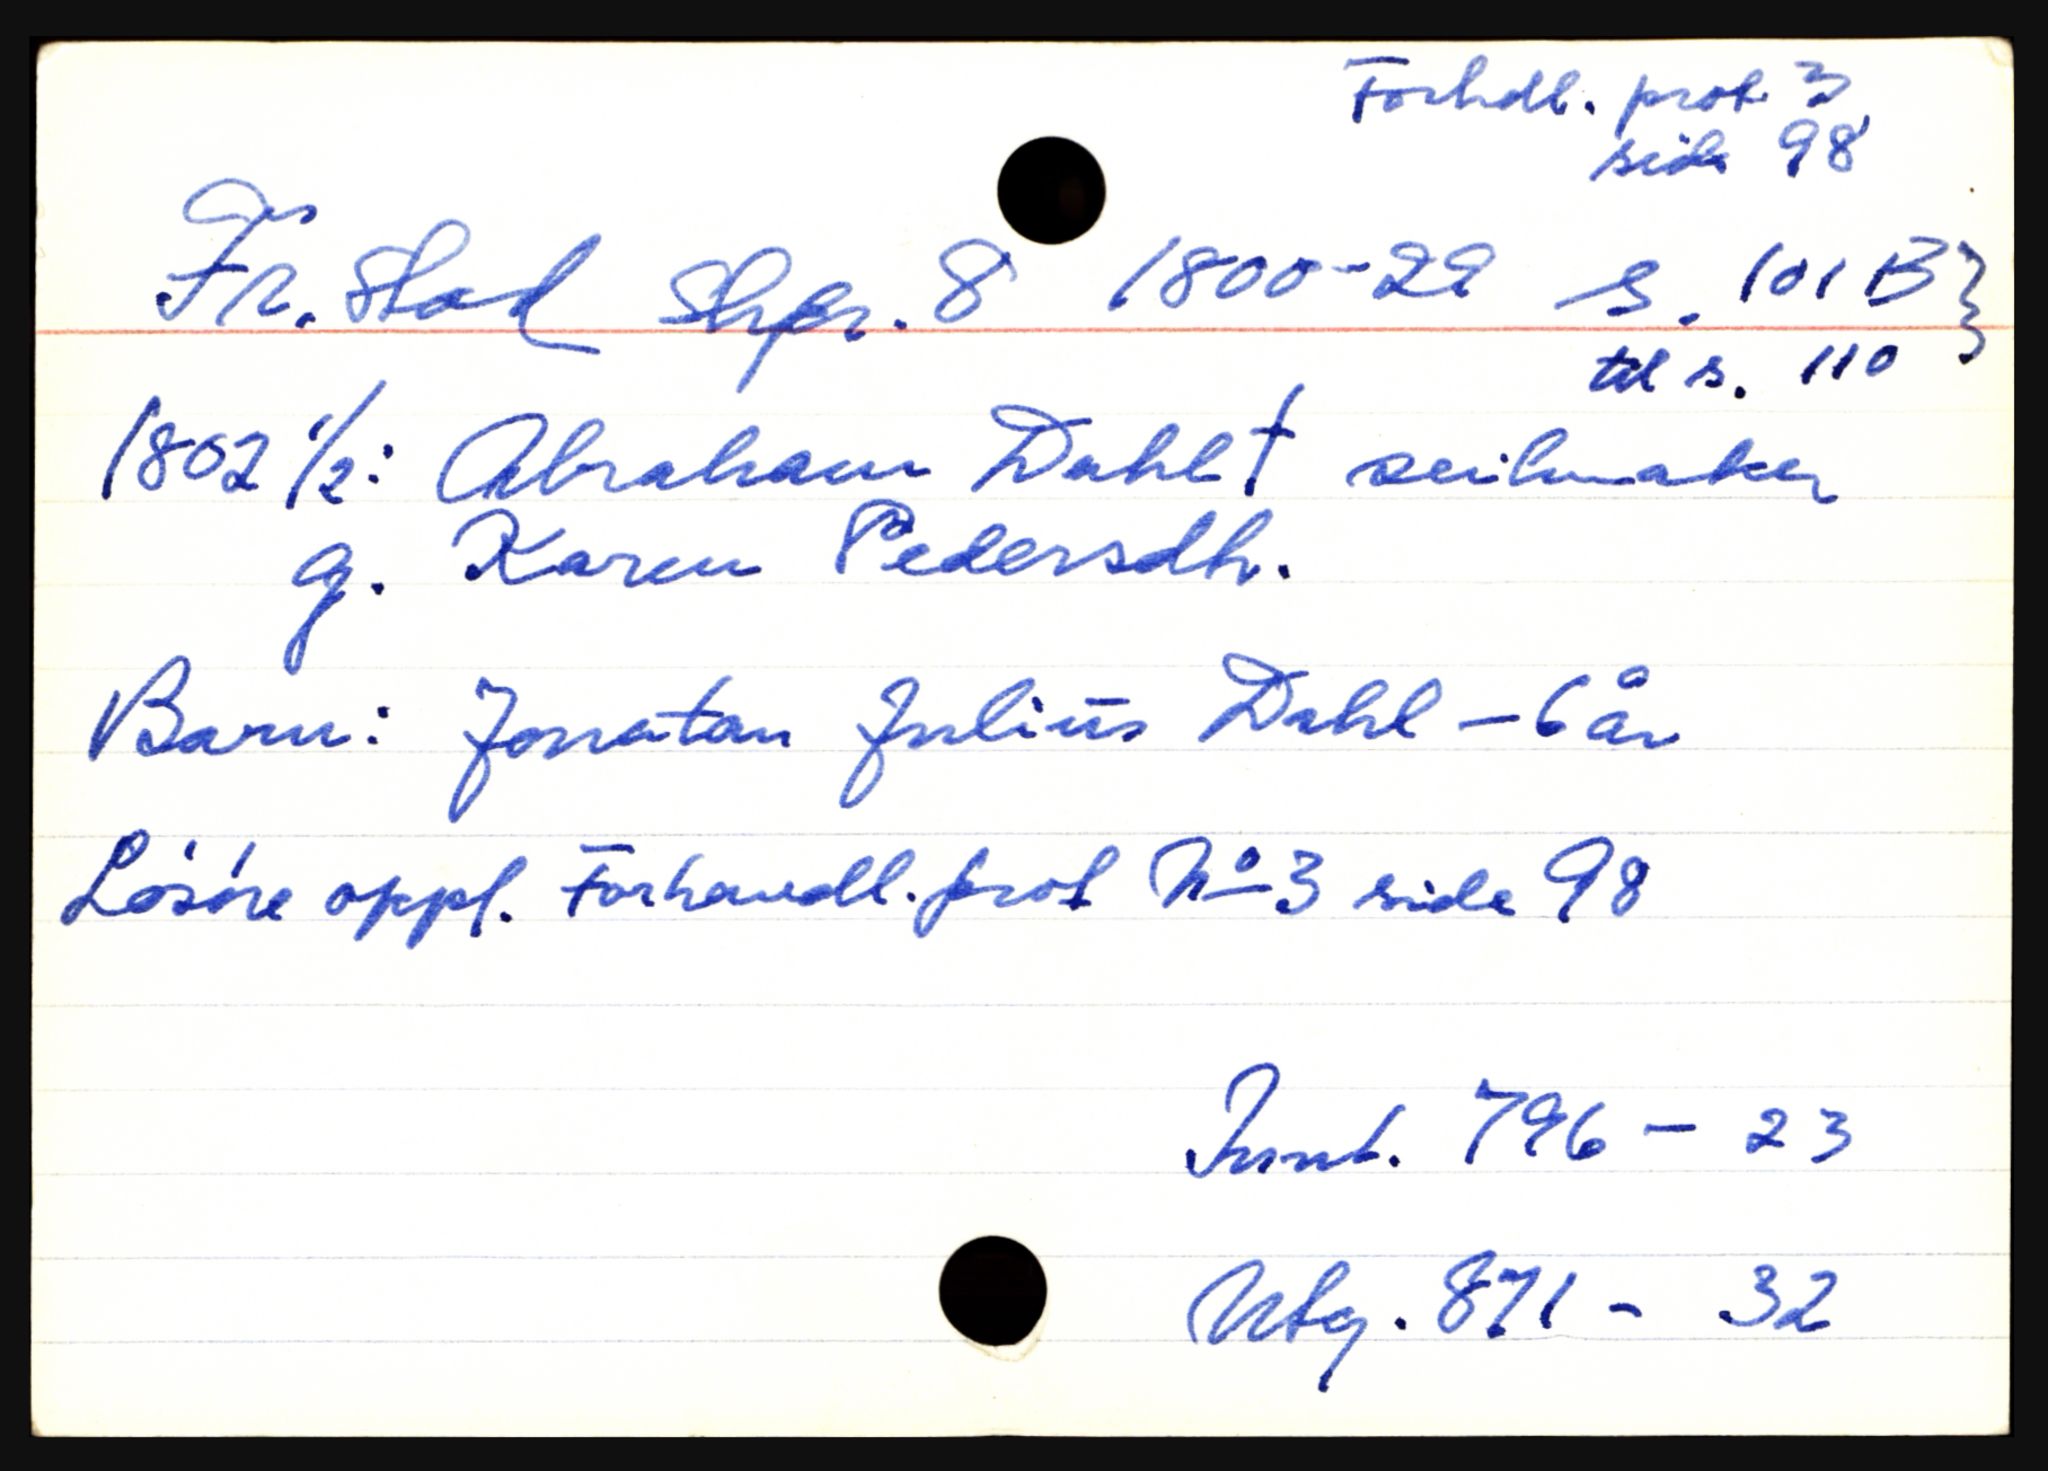 Forhdl. prot 3
side 98
Fr.stad Skpr. 8 1800-22 s. 101B }
til s. 110
1802 1/2: Abraham Dahl † seilmaker
g. Karen Pedersdtr.
Barn: Jonatan Julius Dahl - 6 år
Løsøre oppl. Forhandl. prot No 3 side 98
Innt. 796 - 23
Utg. 871 - 32